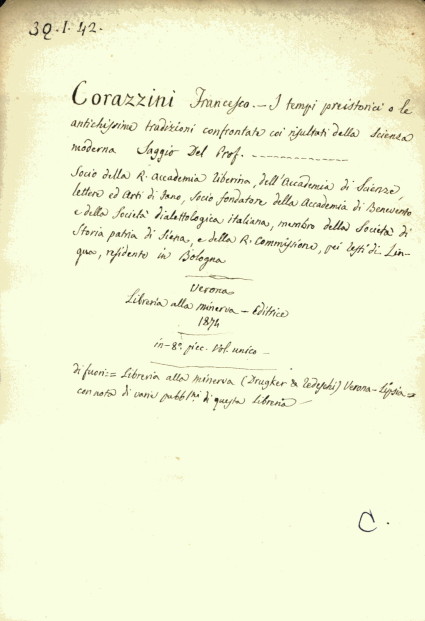 39.I.42.
Corazzini Francesco. – I tempi preistorici o le
antichissime tradizioni confrontate coi risultati della scienza
moderna Saggio Del Prof. –––––––––––
Socio della R. Accademia Tiberina, dell'Accademia di Scienze,
lettere ed Arti di Fano, Socio fondatore della Accademia di Benevento
e della Società dialettologica italiana, membro della Società di
Storia patria di Siena, e della R. Commissione, pei testi di Lin-
gua, residente in Bologna
Verona
Libreria alla minerva – Editrice
1874
in-8º. picc. Vol. unico –
di fuori := Libreria alla minerva (Drugker & Tedeschi) Verona – Lipsia =
con nota di varie pubbl.ni di questa Libreria –
C.